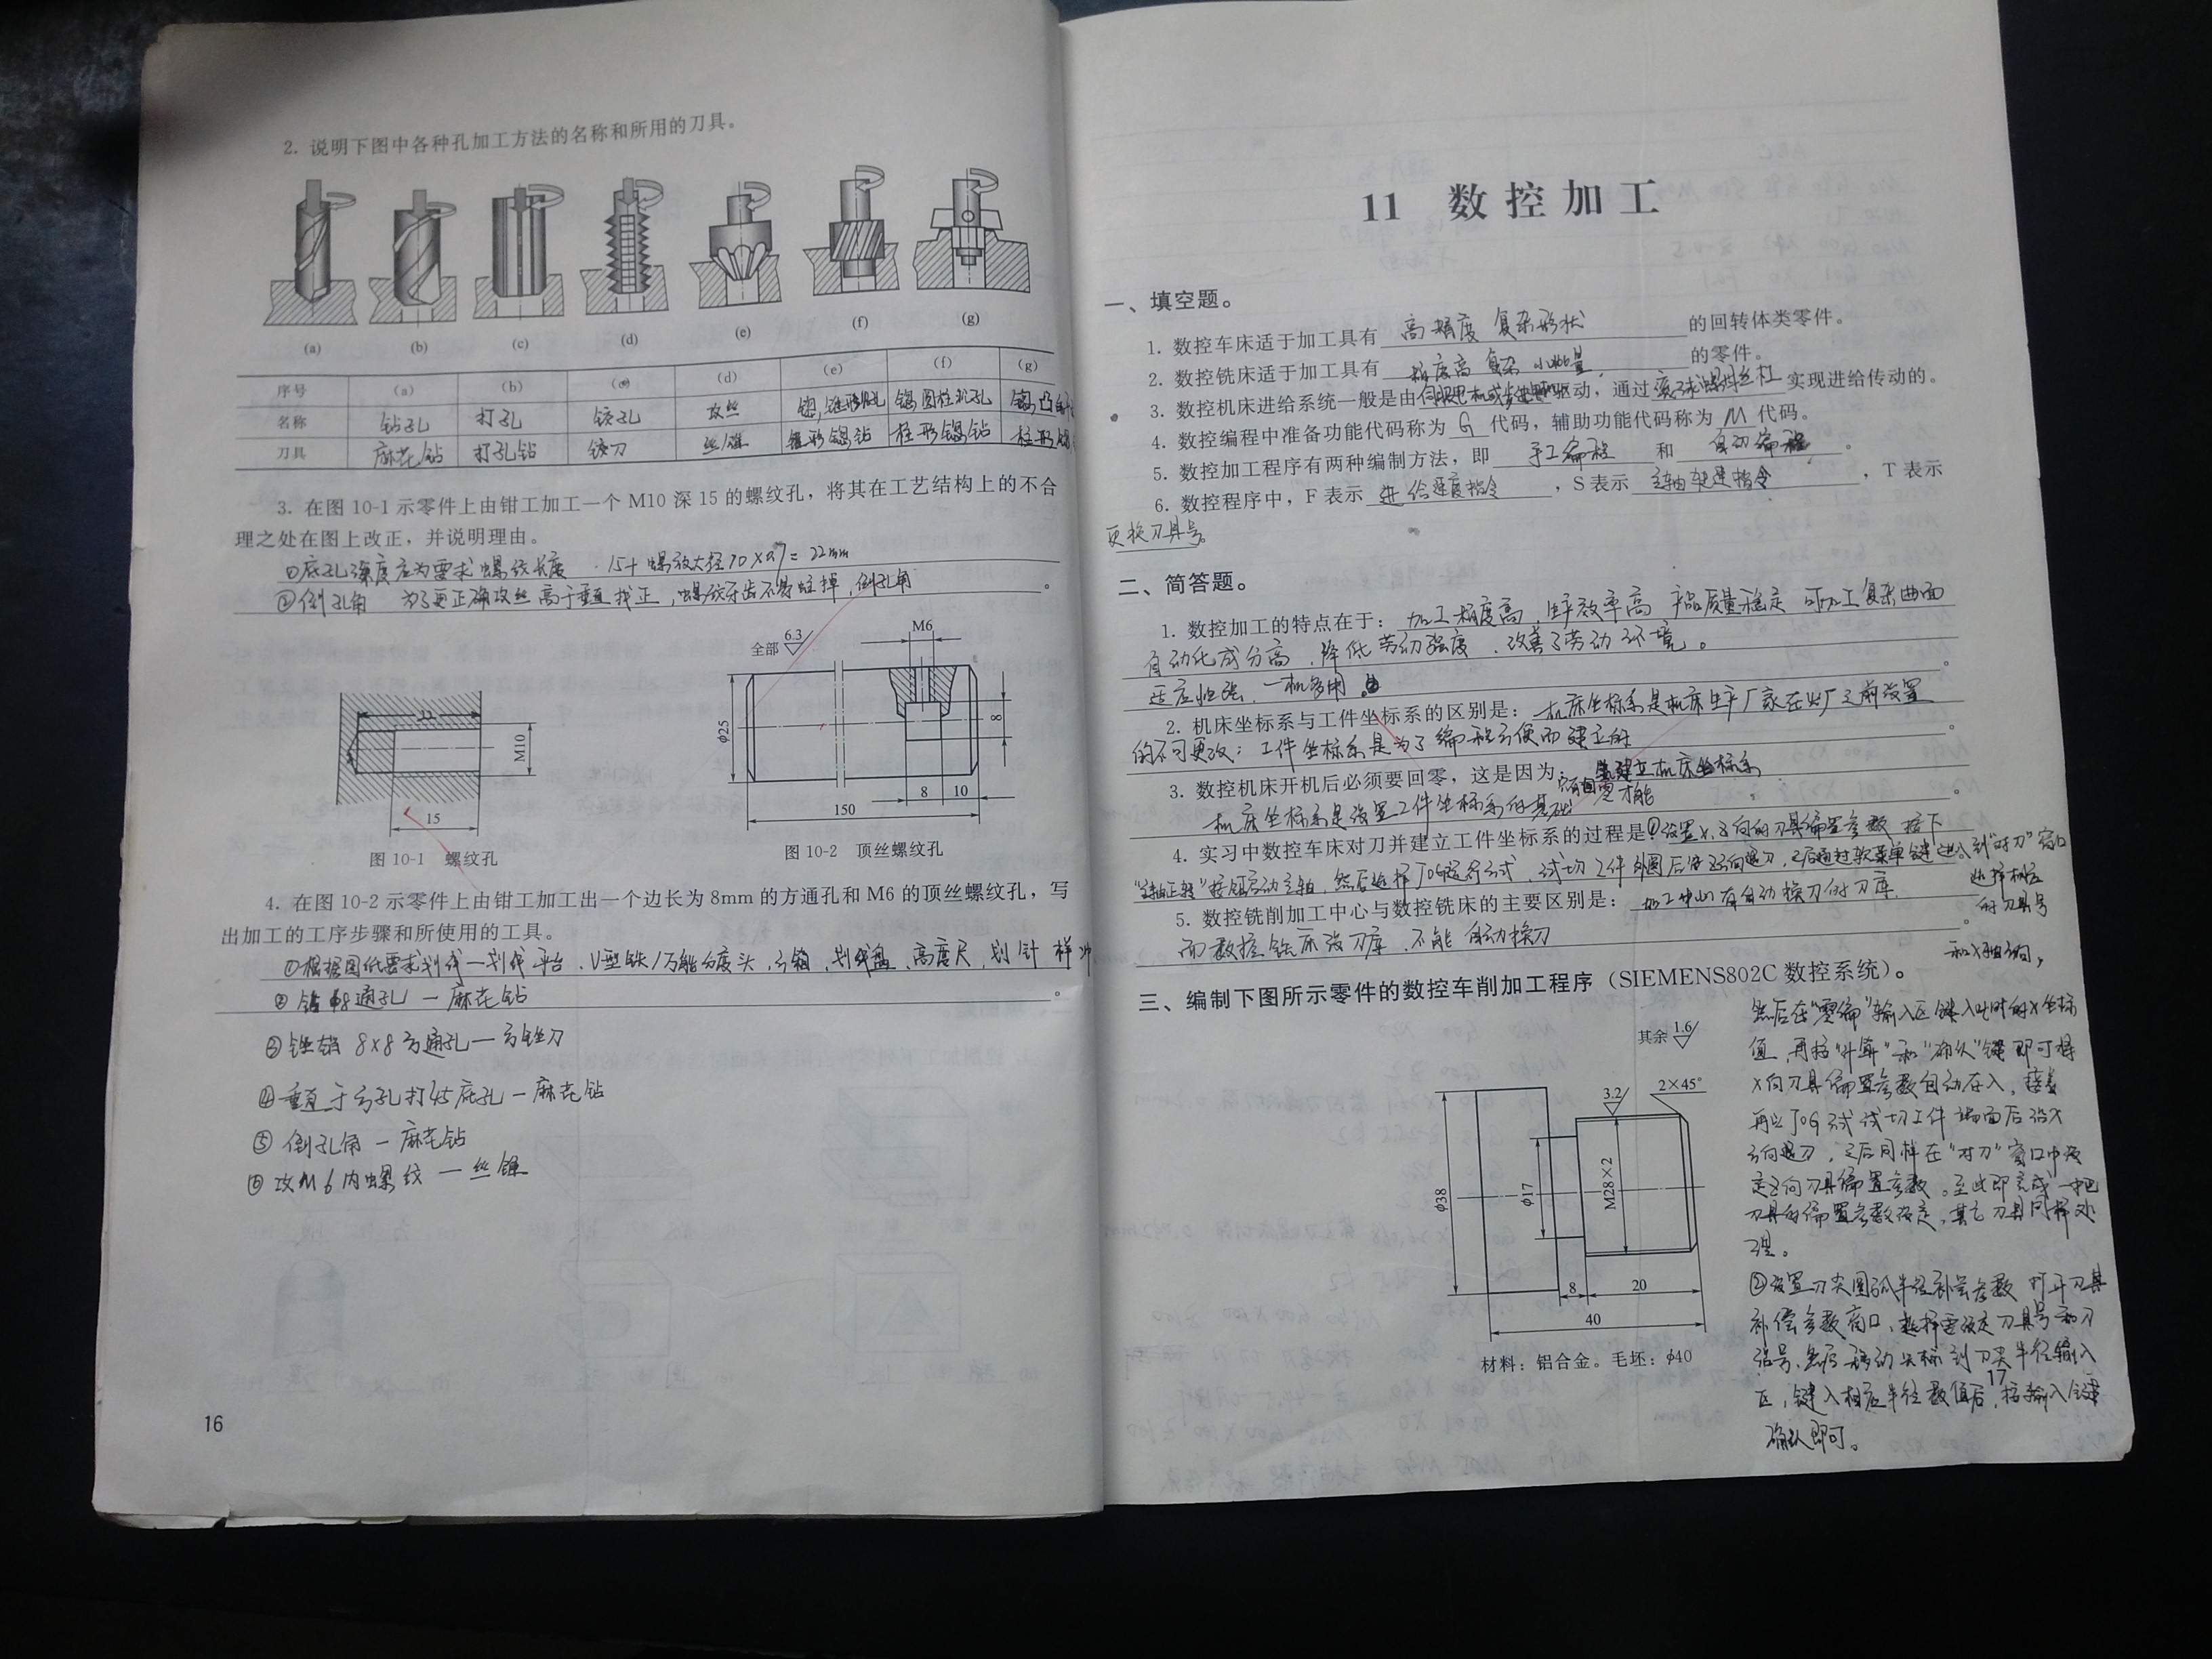 2. 说明下图中各种孔加工方法的名称和所用的刀具。
(a) (b) (c) (d) (e) (f) (g)
序号 (a) (b) (c) (d) (e) (f) (g)
名称 钻孔 打孔 铰孔 攻丝 锪锥形孔 锪圆柱形孔 锪凸
刀具 麻花钻 打孔钻 铰刀 丝锥 锥形锪钻 柱形锪钻 柱形锪
3. 在图 10-1 示零件上由钳工加工一个 M10 深 15 的螺纹孔，将其在工艺结构上的不合
理之处在图上改正，并说明理由。
①底孔深度应为要求螺纹长度 15+螺纹大径10×0.7=22mm
②倒孔角 为了更正确攻丝 高于垂直找正，螺纹牙齿不易蹦掉，倒孔角。
全部 6.3
M6
22
M10
15
图 10-1 螺纹孔
φ25
8
8 10
150
图 10-2 顶丝螺纹孔
4. 在图 10-2 示零件上由钳工加工出一个边长为 8mm 的方通孔和 M6 的顶丝螺纹孔，写
出加工的工序步骤和所使用的工具。
①根据图纸要求划线—划线平台、V型铁/万能分度头、方箱、划线盘、高度尺、划针 样冲
②钻φ8通孔 — 麻花钻
③ 8×8方通孔—方锉刀
④垂直于方孔打φ5底孔—麻花钻
⑤ 倒孔角 — 麻花钻
⑥ 攻M6内螺纹 — 丝锥
16
11 数控加工
一、填空题。
1. 数控车床适于加工具有 高精度 复杂形状 的回转体类零件。
2. 数控铣床适于加工具有 精度高 复杂 小批量 的零件。
3. 数控机床进给系统一般是由伺服电机或步进电机驱动，通过滚珠螺丝杠实现进给传动的。
4. 数控编程中准备功能代码称为 G 代码，辅助功能代码称为 M 代码。
5. 数控加工程序有两种编制方法，即 手工编程 和 自动编程 。
6. 数控程序中，F 表示 进给速度指令 ，S 表示 主轴转速指令 ，T 表示
更换刀具号。
二、简答题。
1. 数控加工的特点在于：加工精度高，生产效率高 产品质量稳定 可加工复杂曲面
自动化成分高，降低劳动强度，改善了劳动环境。
适应性强、一机多用。
2. 机床坐标系与工件坐标系的区别是：机床坐标系是机床生产厂家在出厂之前设置
的不可更改；工件坐标系是为了编程方便而建立的。
3. 数控机床开机后必须要回零，这是因为：只有回零才能建立机床坐标系
机床坐标系是设置工件坐标系的基础。
4. 实习中数控车床对刀并建立工件坐标系的过程是：①设置X、Z向的刀具偏置参数 按下
"主轴正转"按钮启动主轴，然后选择JOG运行方式，试切工件外圆后沿Z方向退刀，之后通过软菜单键进入到"对刀"窗口
选择相应
的刀具号
5. 数控铣削加工中心与数控铣床的主要区别是：加工中心有自动换刀的刀库，
而数控铣床没刀库、不能自动换刀。
和X轴向，
三、编制下图所示零件的数控车削加工程序（SIEMENS802C 数控系统）。
然后在"零偏"输入区键入此时的X坐标
值，再按"计算"和"确认"键即可将
X向刀具偏置参数自动存入，接着
再以JOG方式试切工件端面后沿X
方向退刀，之后同样在"对刀"窗口中设
定Z向刀具偏置参数。至此即完成一把
刀具的偏置参数设定，其它刀具同样处
理。
②设置刀尖圆弧半径补尝参数 打开刀具
补偿参数窗口，选择要设定刀具号和刀
沿号，然后移动光标到刀尖半径输入
区，键入相应半径数值后，按输入键
确认即可。
其余 1.6
3.2
2×45°
φ38
φ17
M28×2
8 20
40
材料：铝合金。毛坯：φ40
17